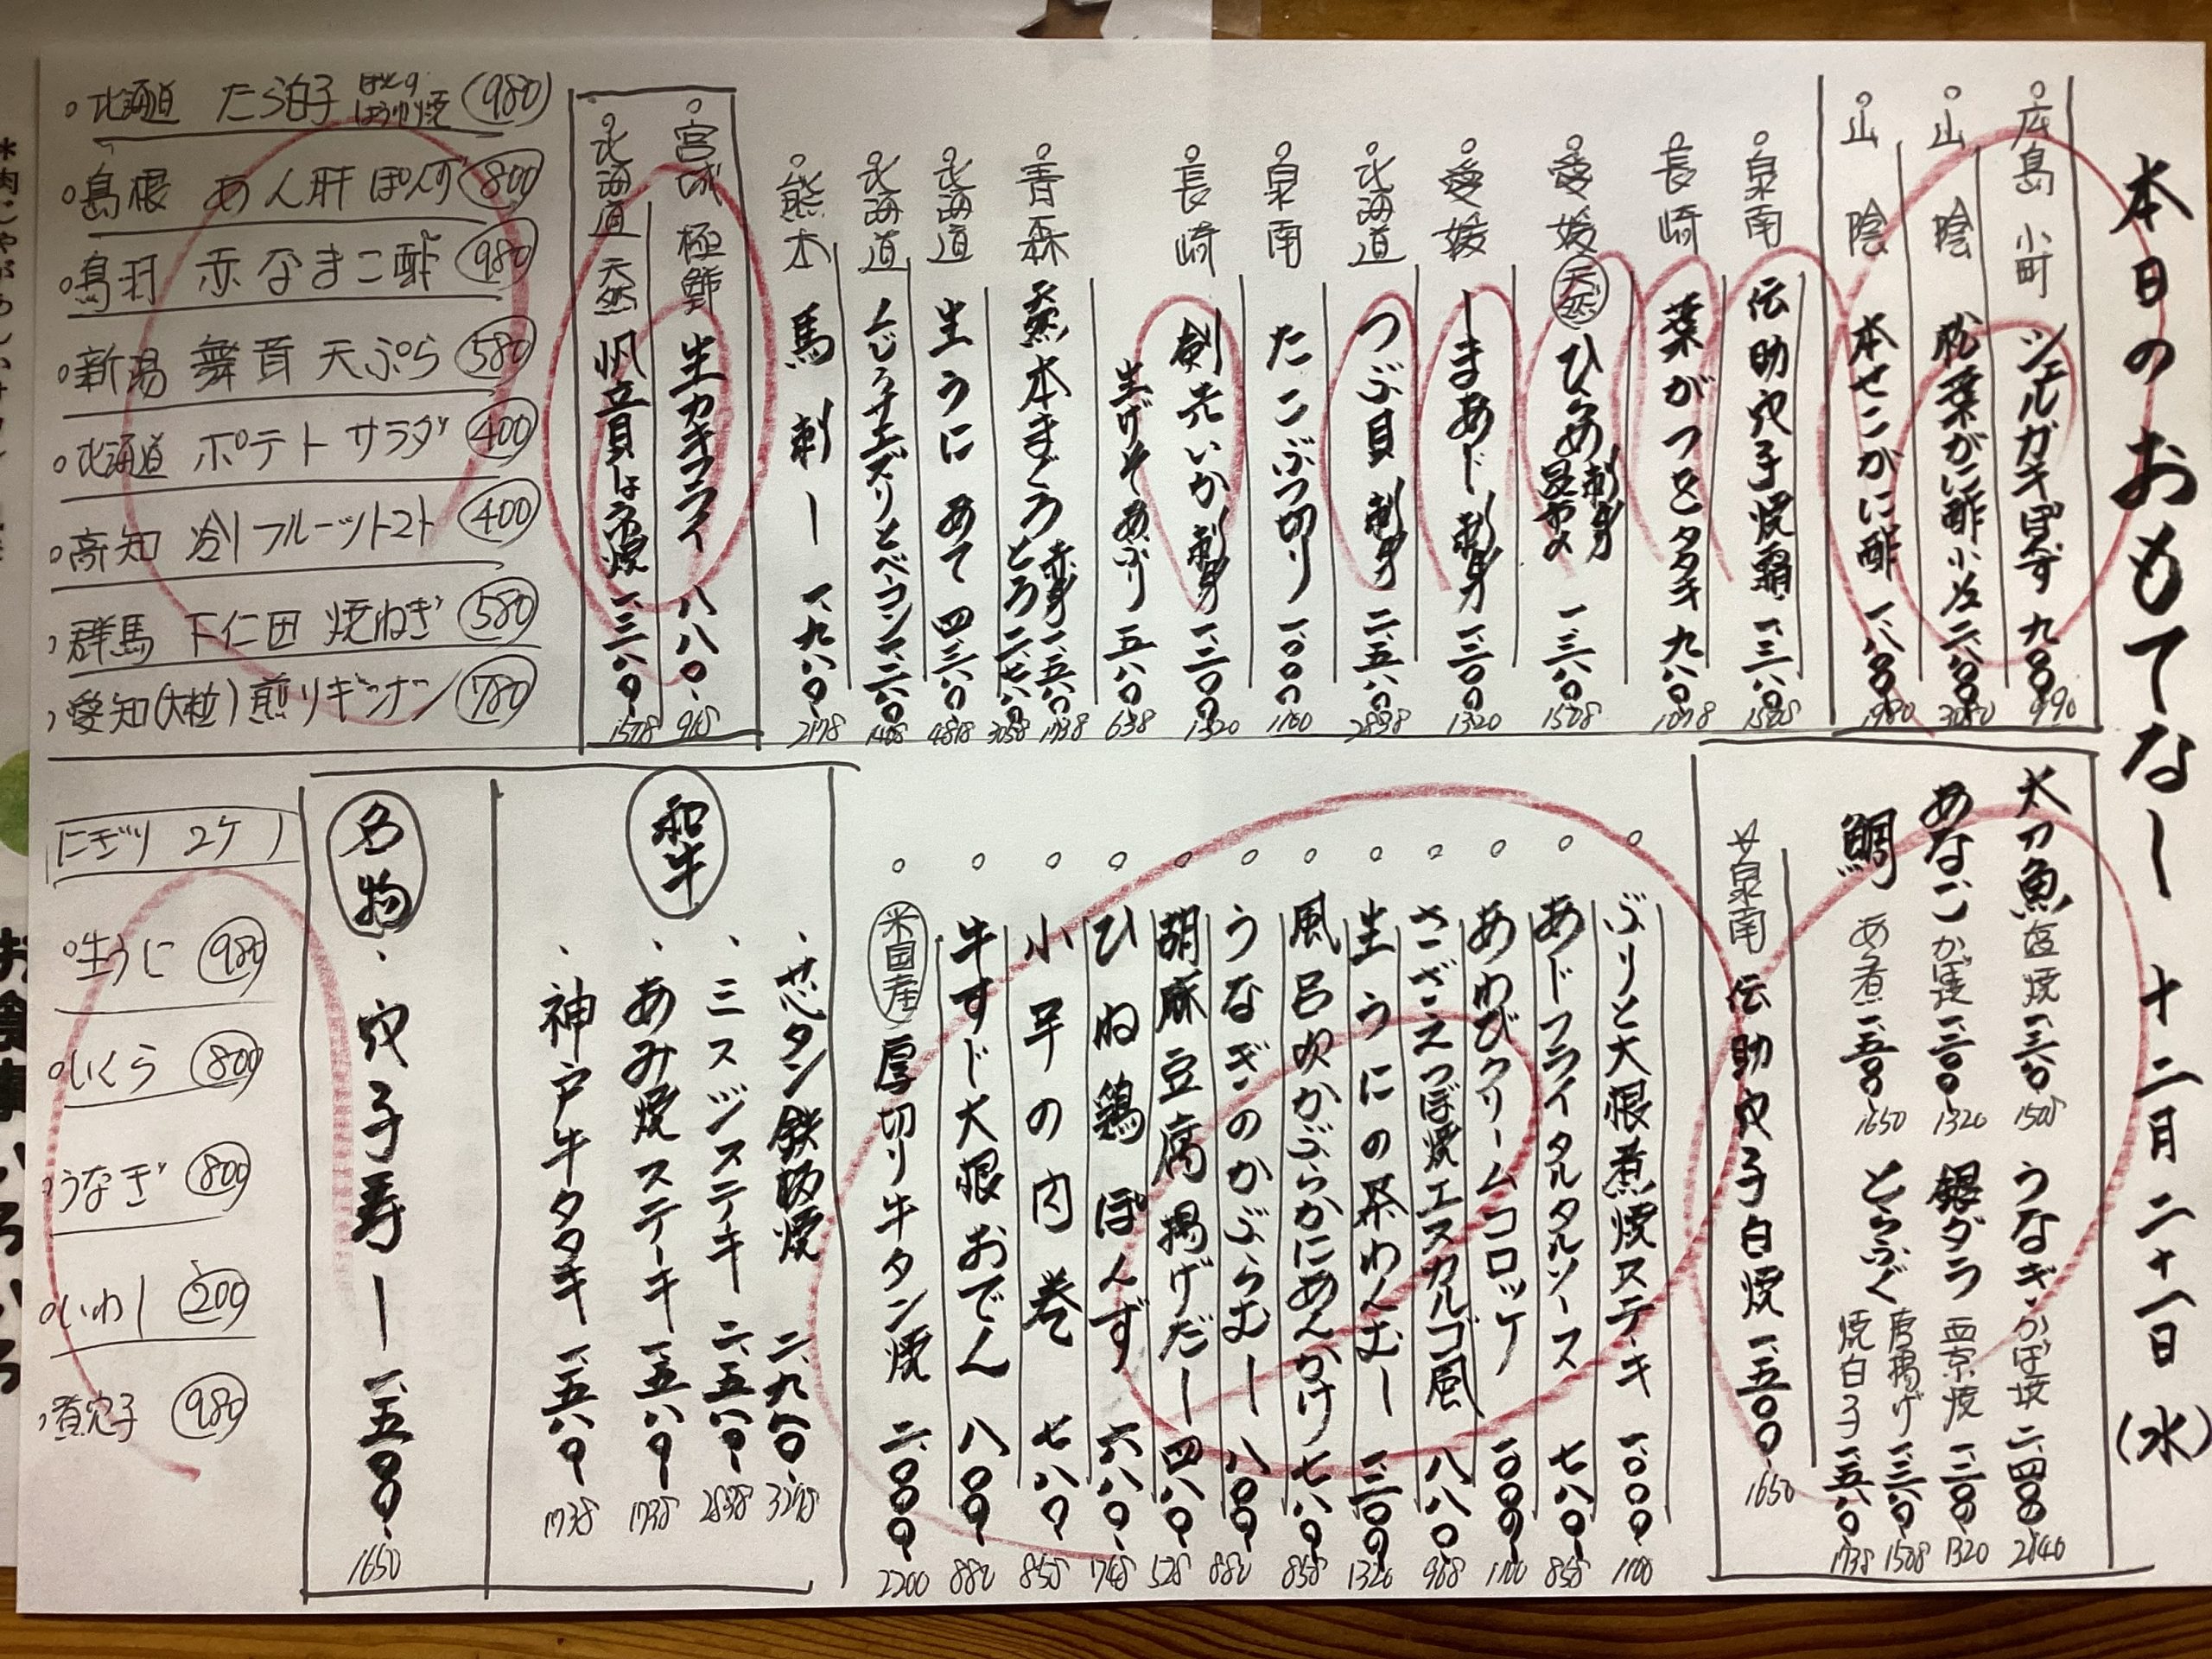 本日のおもてなしー 十二月二十一日(水)
広島 小町 シェルガキぽんず 九〇〇 990
山陰 松葉がに酢 小 1/2 二、八〇〇 3080
山陰 本せこがに酢 一、八〇〇 1980
泉南 伝助穴子焼霜 一、三八〇 1518
長崎 葉がつをタタキ 九八〇 1078
愛媛 天然 ひらめ 刺身 昆布〆 一、三八〇 1518
愛媛 しまあじ 刺身 一、二〇〇 1320
北海道 つぶ貝 刺身 二、五八〇 2838
泉南 たこぶつ切り 一、〇〇〇 1100
長崎 剣先いか 刺身 一、二〇〇 1320
生げそあぶり 五八〇 638
青森 天然 本まぐろ 赤身 一、五八〇 1738
とろ 二、七八〇 3058
北海道 生うに あて 四、三八〇 4818
北海道 くじらサエズリとベーコン 一、二八〇 1408
熊本 馬刺ー 一、九八〇 2178
宮城 極鮮 生カキフライ 八八〇 968
北海道 天然 帆立貝しょうゆ焼 一、三八〇 1518
北海道 たら白子 ぽんず しょうゆ焼 980
島根 あん肝ぽんず 800
鳥羽 赤なまこ酢 980
新潟 舞茸 天ぷら 580
北海道 ポテトサラダ 400
高知 冷しフルーツトマト 400
群馬 下仁田 焼ねぎ 580
愛知(大粒)煎りギンナン 780
太刀魚 塩焼 一、三八〇 1518
うなぎ かば焼 二、四〇〇 2640
あなご かば焼 一、二〇〇 1320
銀ダラ 西京焼 一、二〇〇 1320
鯛 あら煮 一、五〇〇 1650
とらふぐ 唐揚げ 一、三八〇 1518
焼白子 一、五八〇 1738
泉南 伝助穴子白焼 一、五〇〇 1650
ぶりと大根煮焼ステーキ 一、〇〇〇 1100
あじフライタルタルソース 七八〇 858
あわびクリームコロッケ 一、〇〇〇 1100
さざえつぼ焼エスカルゴ風 八八〇 968
生うにの茶わんむしー 一、二〇〇 1320
風呂吹かぶらかにあんかけ 七八〇 858
うなぎのかぶらむしー 八〇〇 880
胡麻豆腐揚げだしー 四八〇 528
ひね鶏ぽんず 六八〇 748
小芋の肉巻 七八〇 858
牛すじ大根おでん 八〇〇 880
米国産 厚切り牛タン焼 二、〇〇〇 2200
和牛
芯タン鉄板焼 二、九八〇 3278
ミスジステーキ 二、五八〇 2838
あみ焼ステーキ 一、五八〇 1738
神戸牛タタキ 一、五八〇 1738
名物
穴子寿しー 一、五〇〇 1650
にぎり 2ケ
生うに 980
いくら 800
うなぎ 800
いわし 200
煮穴子 980